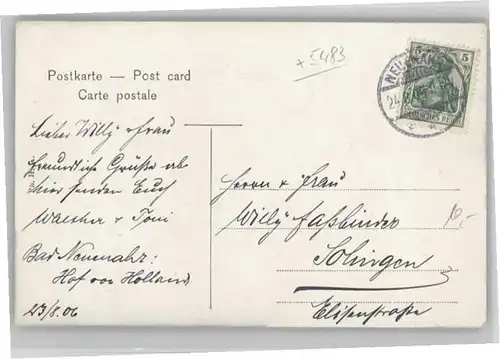 + 5483
Postkarte — Post card
Carte postale
5 5
NEUENAHR
24.
DEUTSCHES REICH
Lieber Willy & Frau
Freundliche Grüße ab
hier senden Euch
Walther & Toni
Bad Neuenahr:
Hof von Holland
23/8.06
Herrn & Frau
Willy Faßbinder
10,-
Solingen
Elisenstraße